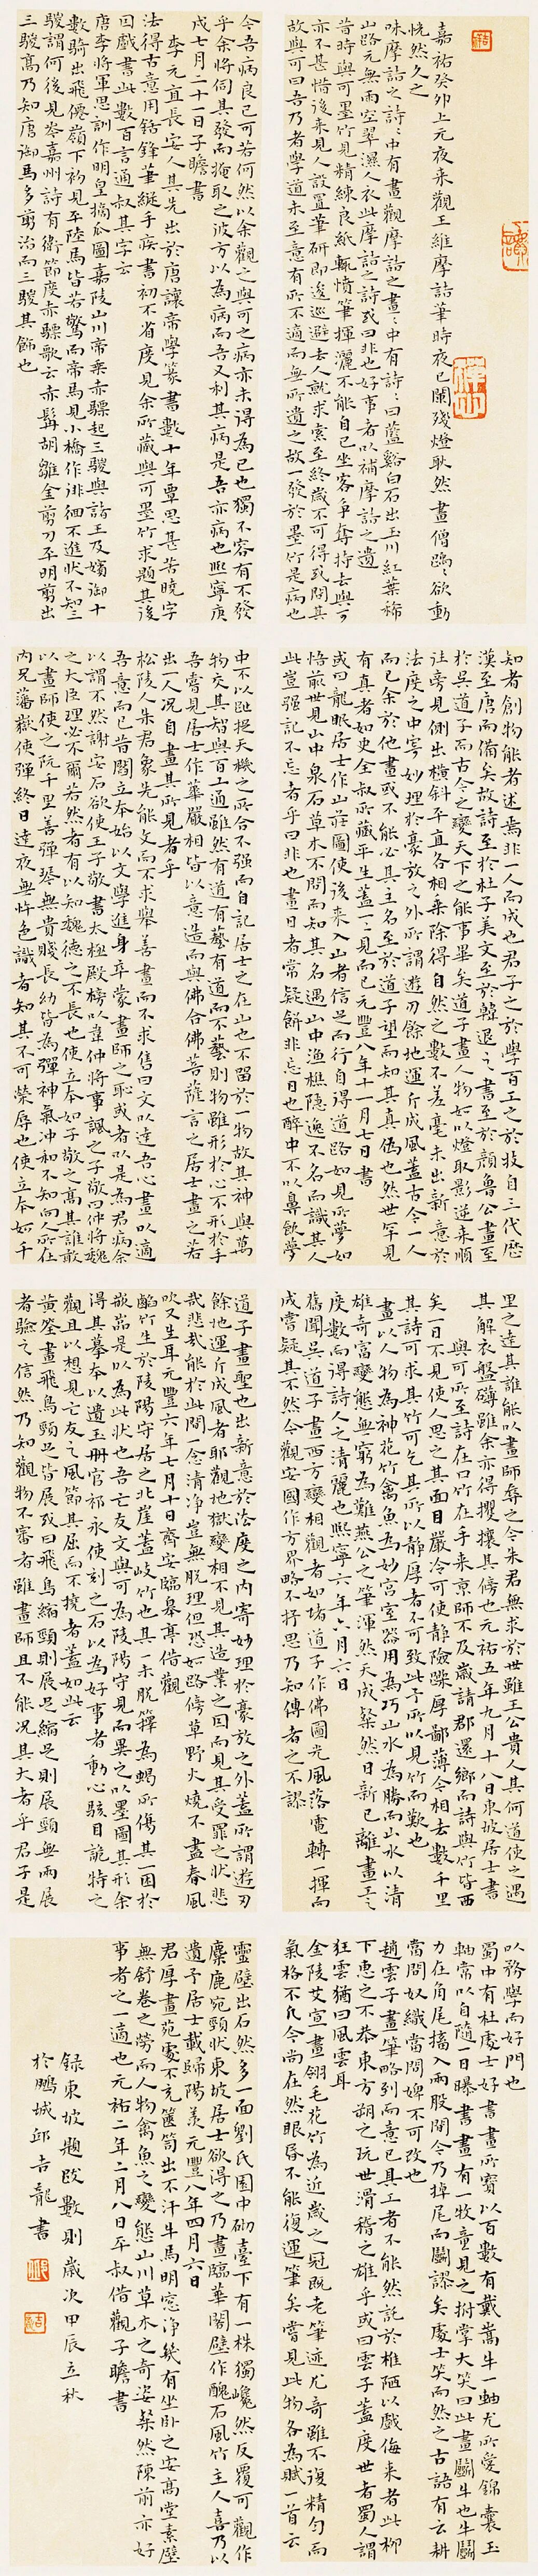 嘉祐癸卯上元夜来觀王維摩詰筆時夜已闌殘燈耿然畫僧踽踽欲動
恍然久之
味摩詰之詩詩中有畫觀摩詰之畫畫中有詩詩曰藍谿白石出玉川紅葉稀
山路元無雨空翠濕人衣此摩詰之詩或曰非也好事者以補摩詰之遺
昔時與可墨竹見精練良紙輒憤筆揮灑不能自已坐客爭奪持去與可
亦不甚惜後来見人設置筆研即逡巡避去人就求索至終歲不可得或問其
故與可曰吾乃者學道未至意有所不適而無所遣之故一發於墨竹是病也
今吾病良已可若何然以余觀之與可之病亦未得為已也獨不容有不發
乎余將伺其發而掩取之彼方以為病而吾又利其病是吾亦病也熙寧庚
戌七月二十一日子瞻書
李元直長安人其先出於唐讓帝學篆書數十年覃思甚苦曉字
法得古意用銛鋒筆縱手疾書初不省度見余所藏與可墨竹求題其後
因戲書此數百言通叔其字云
唐李將軍思訓作明皇摘瓜圖嘉陵山川帝乘赤驃起三騣與諸王及嬪御十
數騎出飛僊嶺下初見平陸馬皆若驚而帝馬見小橋作徘徊不進狀不知三
騣謂何後見岑嘉州詩有衛節度赤驃歌云赤髯胡雛金剪刀平明剪出
三騣高乃知唐御馬多剪治而三騣其飾也
知者創物能者述焉非一人而成也君子之於學百工之於技自三代歷
漢至唐而備矣故詩至於杜子美文至於韓退之書至於顏魯公畫至
於吳道子而古今之變天下之能事畢矣道子畫人物如以燈取影逆来順
往旁見側出橫斜平直各相乘除得自然之數不差毫末出新意於
法度之中寄妙理於豪放之外所謂遊刃餘地運斤成風蓋古今一人
而已余於他畫或不能必其主名至於道子望而知其真偽也然世罕見
有真者如史全叔所藏平生蓋一二見而已元豐八年十一月七日書
或曰龍眠居士作山莊圖使後来入山者信足而行自得道路如見所夢如
悟前世見山中泉石草木不問而知其名遇山中漁樵隱逸不名而識其人
此豈強記不忘者乎曰非也畫日者常疑餅非忘日也醉中不以鼻飲夢
中不以趾捉天機之所合不强而自記居士之在山也不留於一物故其神與萬
物交其智與百工通雖然有道有藝有道而不藝則物雖形於心不形於手
吾嘗見居士作華嚴相皆以意造而與佛合佛菩薩言之居士畫之若
出一人况自畫其所見者乎
松陵人朱君象先能文而不求舉善畫而不求售曰文以達吾心畫以適
吾意而已昔閻立本始以文學進身卒蒙畫師之恥或者以是為君病余
以謂不然謝安石欲使王子敬書太極殿榜以韋仲將事諷之子敬曰仲將魏
之大臣理必不爾若然者有以知魏德之不長也使立本如子敬之高其誰敢
以畫師使之阮千里善彈琴無貴賤長幼皆為彈神氣冲和不知向人所在
内兄潘嶽使彈終日達夜無忤色識者知其不可榮辱也使立本如千
里之達其誰能以畫師辱之今朱君無求於世雖王公貴人其何道使之遇
其解衣盤礴雖余亦得攫攘其傍也元祐五年九月十八日東坡居士書
與可所至詩在口竹在手来京師不及歲請郡還鄉而詩與竹皆西
矣一日不見使人思之其面目嚴冷可使静險躁厚鄙薄今相去數千里
其詩可求其竹可乞其所以静厚者不可致此予所以見竹而歎也
畫以人物為神花竹禽魚為妙宮室器用為巧山水為勝而山水以清
雄奇富變態無窮為難燕公之筆渾然天成粲然日新已離畫工之
度數而得詩人之清麗也熙寧六年六月六日
舊聞吳道子畫西方變相觀者如堵道子作佛圓光風落電轉一揮而
成嘗疑其不然今觀安國作方界略不抒思乃知傳者之不謬
道子畫聖也出新意於法度之内寄妙理於豪放之外蓋所謂遊刃
餘地運斤成風者耶觀地獄變相不見其造業之因而見其受罪之狀悲
哉悲哉能於此間一念清净豈無脱理但恐如路傍草野火燒不盡春風
吹又生耳元豐六年七月十日齊安臨皋亭借觀
酷竹生於陵陽守居之北崖蓋岐竹也其一未脱籜為蝎所傷其一困於
嵌岩是以為此狀也吾亡友文與可為陵陽守見而異之以墨圖其形余
得其摹本以遺玉册官祁永使刻之石以為好事者動心駭目詭特之
觀且以想見亡友之風節其屈而不撓者蓋如此云
黄筌畫飛鳥頸足皆展或曰飛鳥縮頸則展足縮足則展頸無兩展
者驗之信然乃知觀物不審者雖畫師且不能况其大者乎君子是
以務學而好問也
蜀中有杜處士好書畫所寶以百數有戴嵩牛一軸尤所愛錦囊玉
軸常以自隨一日曝書畫有一牧童見之拊掌大笑曰此畫鬭牛也牛鬭
力在角尾搐入兩股間今乃掉尾而鬭謬矣處士笑而然之古語有云耕
當問奴織當問婢不可改也
趙雲子畫筆略到而意已具工者不能然託於椎陋以戲侮来者此柳
下惠之不恭東方朔之玩世滑稽之雄乎或曰雲子蓋度世者蜀人謂
狂雲猶曰風雲耳
金陵艾宣畫翎毛花竹為近歲之冠既老筆迹尤奇雖不復精勻而
氣格不凡今尚在然眼昏不能復運筆矣嘗見此物各為賦一首云
靈壁出石然多一面劉氏園中砌臺下有一株獨巉然反覆可觀作
麋鹿宛頸狀東坡居士欲得之乃畫臨華閣壁作醜石風竹主人喜乃以
遺予居士載歸陽羨元豐八年四月六日
君厚畫苑處不充篋笥出不汗牛馬明窓净几有坐卧之安高堂素壁
無舒卷之勞而人物禽魚之變態山川草木之奇姿粲然陳前亦好
事者之一適也元祐二年二月八日平叔借觀子瞻書
録東坡題跋數則歲次甲辰立秋
於鵬城邱吉龍書